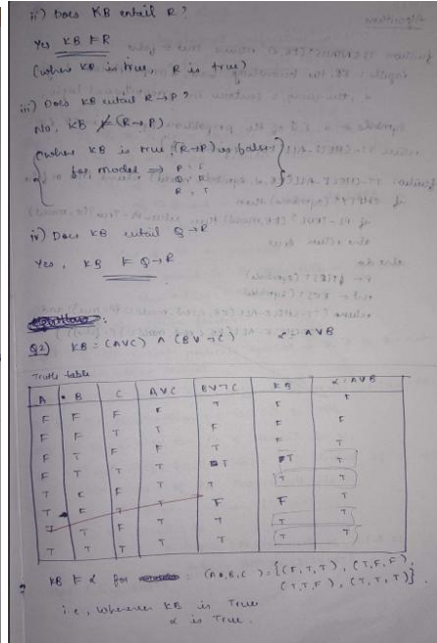 ii) Does KB entail R?
Yes KB ⊨ R
(where KB is true, R is true)
iii) Does KB entail R→P?
No, KB ⊭ (R→P)
(where KB is true, (R→P) is false
for model ⇒ P : F
Q
R : T
iv) Does KB entail Q→R
Yes, KB ⊨ Q→R
Q2) KB = (AVC) ∧ (BV¬C) α = AVB
Truth table
A B C AVC BV¬C KB α: AVB
F F F F T F F
F F T T F F F
F T F F T F T
F T T T T T T
T F F T T T T
T F T T F F T
T T F T T T T
T T T T T T T
KB ⊨ α for (A,B,C) = {(F,T,T), (T,F,F),
(T,T,F), (T,T,T)}
i.e., whenever KB is True
α is True.